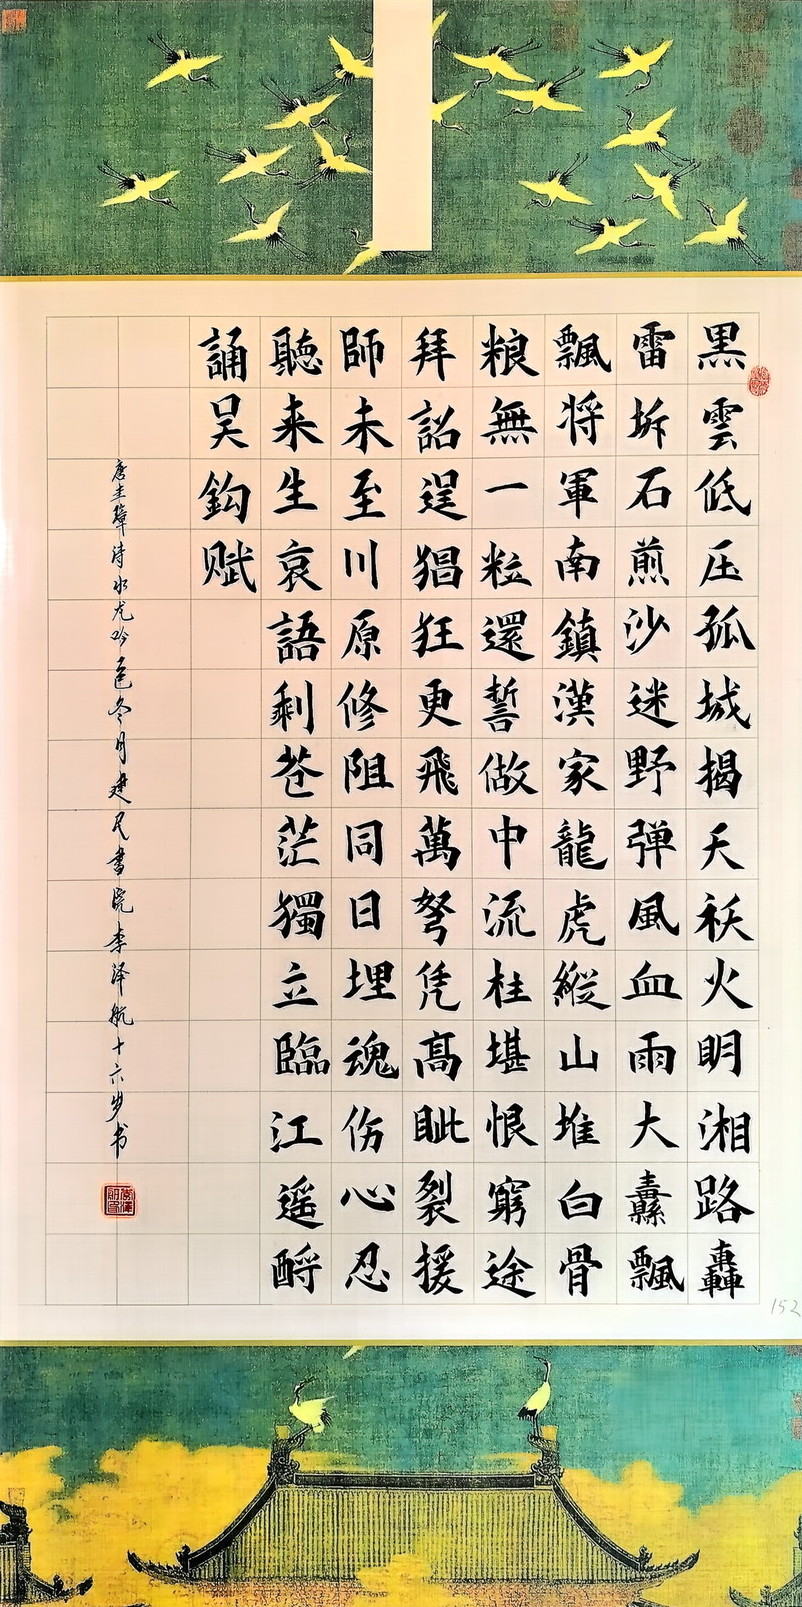 黑雲低压孤城揭天祅火明湘路轟
雷坼石煎沙迷野弹風血雨大纛飄
飄将軍南鎮漢家龍虎縱山堆白骨
粮無一粒還誓做中流柱堪恨窮途
拜詔逞猖狂更飛萬弩凭高眦裂援
師未至川原修阻同日埋魂伤心忍
聽来生哀語剩苍茫獨立臨江遥酹
誦吴鈎赋
唐圭璋诗水龙吟 冬月建民書院李泽航十六岁书
152